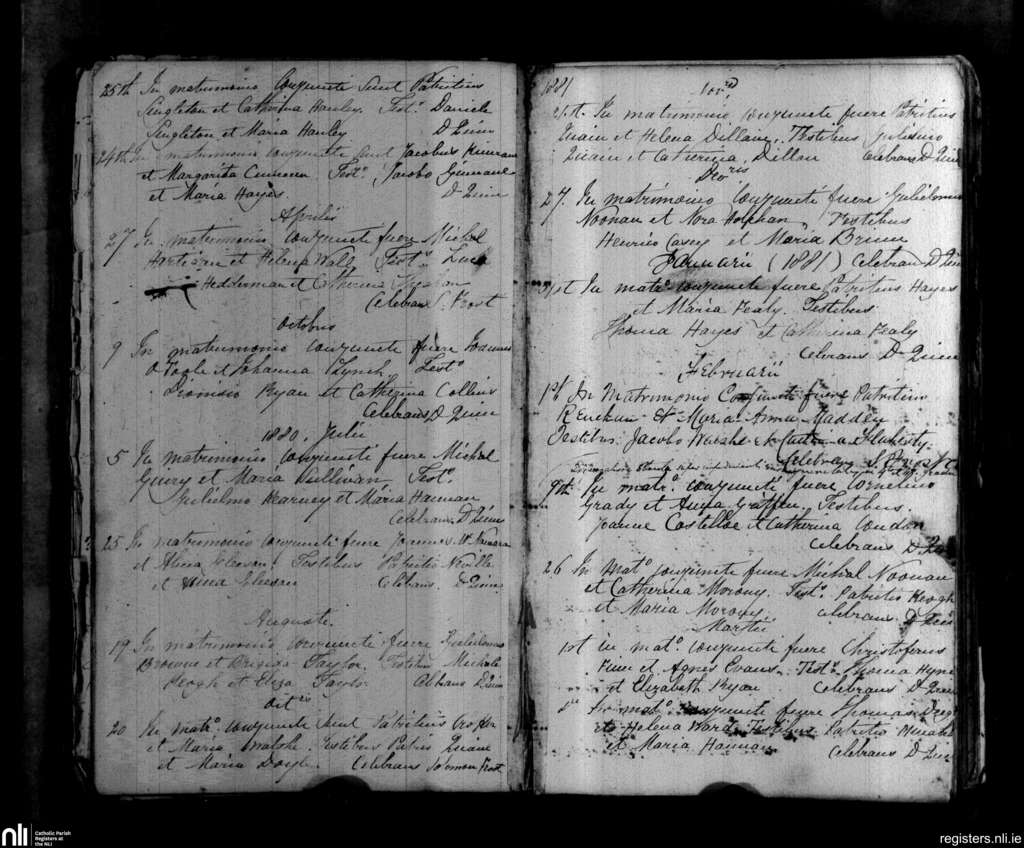 25th In matrimonio Conjuncti Sunt Patritius
Singleton et Catherina Hanley. Testo. Daniele
Singleton et Maria Hanley D Quinn
24th In matrimonio conjuncti sunt Jacobus
et Margarita Testo. Jacobo
et Maria Hayes. D Quinn
Aprilis
27 In matrimonio conjuncti fuere Michal
Hartigan et Helena Wall Testo.
Hedderman et Catherina
Celebrans S. Frost
Octobris
9 In matrimonio conjuncti fuere Joannes
O Toole et Johanna Lynch. Testo.
Dionisio Ryan et Catherina Collins
Celebrans D Quinn
1880. Julii
5 In matrimonio conjuncti fuere Michal
et Maria Sullivan Testo.
Gulielmo Kearney et Maria Hannan
Celebrans D Quinn
25 In matrimonio conjuncti fuere Joannes McNamara
et Anna Gleeson. Testibus Patritio Neville
et Anna Gleeson Celebrans. D Quinn
Auguste.
19 In matrimonio conjuncti fuere Gulielmus
Browne et Brigida Taylor. Testibus Michale
Keogh et Eliza Taylor Celebrans D Quinn
20 In mato. conjuncti sunt Patritius
et Maria Testibus Patrio
et Maria Doyle. Celebrans Solomon Frost
1881
21st. In matrimonio conjuncti fuere Patritius
Quain et Helena Dillon. Testibus Gulielmo
Quain et Catherina Dillon Celebrans D Quinn
27. In matrimonio conjuncti fuere Gulielmus
Noonan et Nora Testibus
Henrico Casey et Maria
Januarii (1881) Celebran D Quinn
31st In mato. conjuncti fuere Patritius Hayes
et Maria Healy. Testibus
Thoma Hayes et Catherina Healy
Celebrans D Quinn
Februarii
1st In Matrimonio Conjuncti fuere Patritius
et Maria Anna Madden
Testibus: Jacobo Walshe et
Celebrans S. Frost
9th. In mato. conjuncti fuere Cornelius
Grady et Anna Griffin. Testibus.
Joanne Costelloe et Catherina Condon
Celebrans D. Quinn
26 In Mato. conjuncti fuere Michal Noonan
et Catherina Morony. Testo. Patritio Keogh
et Maria Morony. Celebrans D Quinn
Martii
1st in mato. conjuncti fuere Christoferus
et Agnes Evans. Testo. Thoma
et Elizabeth Ryan Celebrans D Quinn
In mato. conjuncti fuere Thomas
et Helena Ward. Testibus Patritio
et Maria Hannan Celebrans D Quinn
nli Catholic Parish
Registers at
the NLI
registers.nli.ie